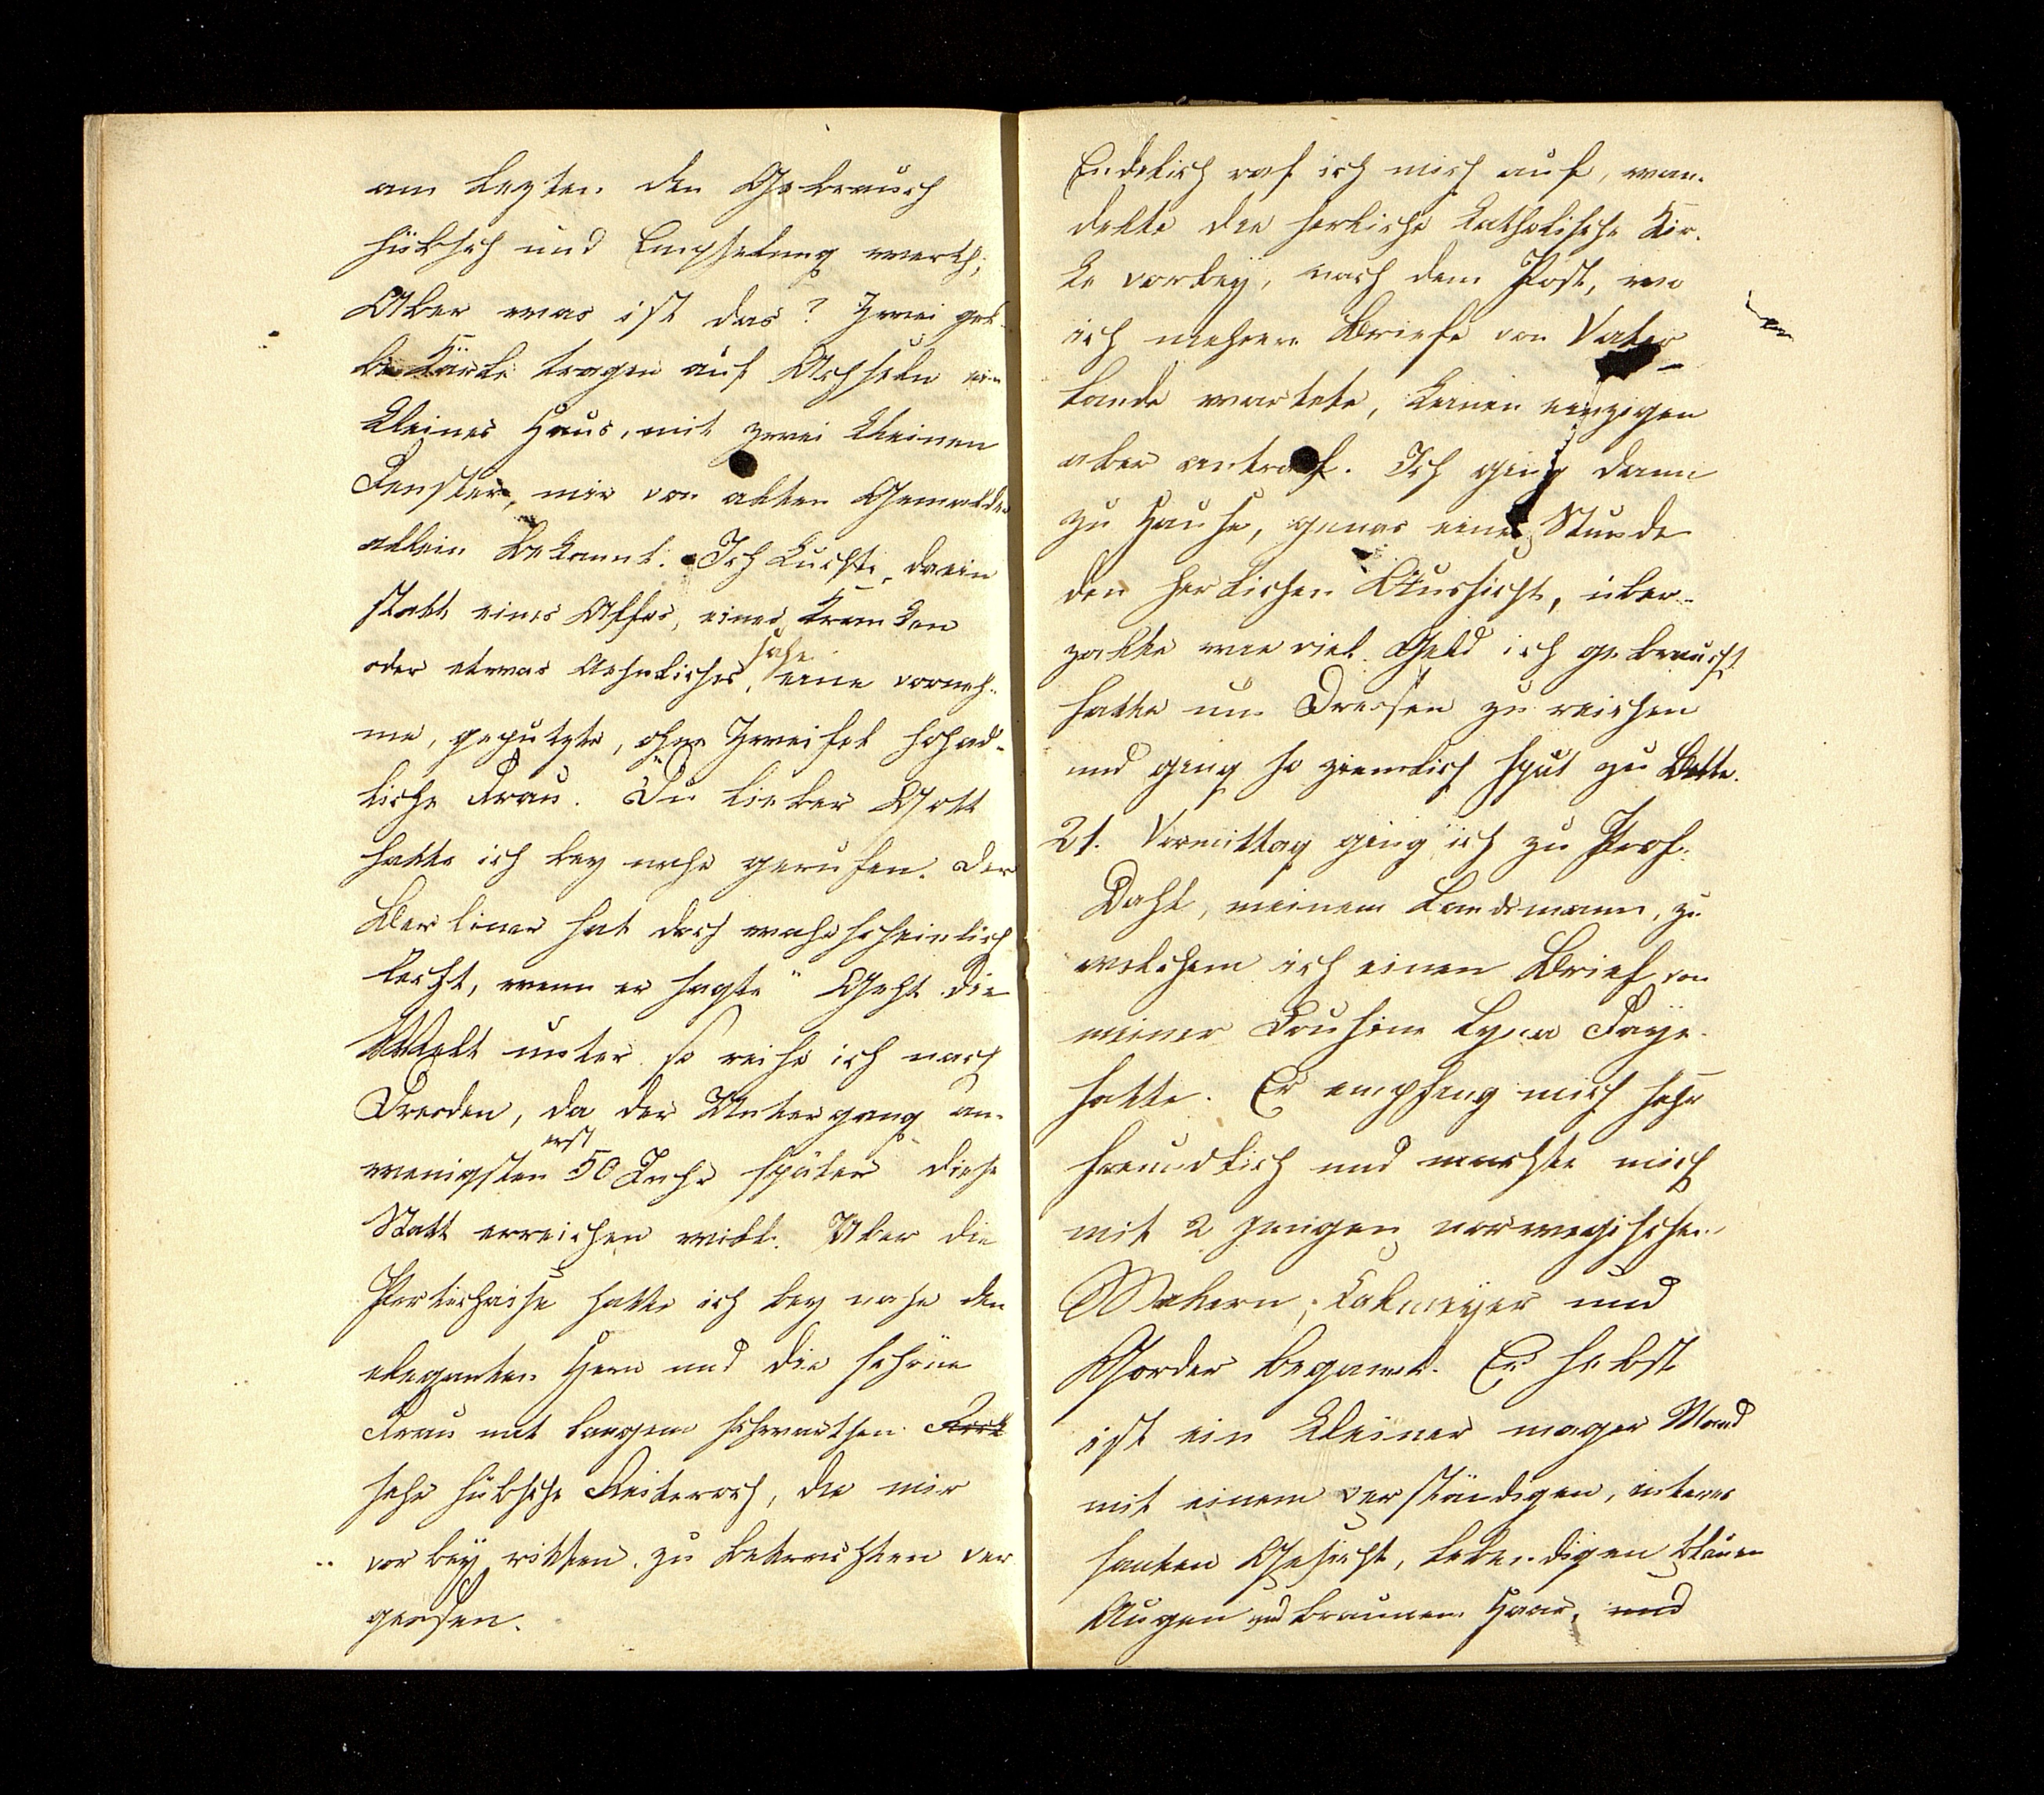 am lezten den Gebrauch
hübsch und Empfelung werth;
Aber was ist das? Zwei gel-
be Kärle tragen auf Achseln ein
kleines Haus, mit zwei kleinen
Fenster, mir von alten Gemälden
allein bekannt. Ich kuckte darin
statt eines Affes, eines Kranken
oder etwas Aehnliches, sahe eine vorneh-
me, geputzte, ohne Zweifel hohad-
liche Frau. Du lieber Gott
hatte ich bey nahe gerufen. Der
Berliner hat doch wahrscheinlich
Recht, wenn er sagte "Geht die
Welt unter so reise ich nach
Dresden, da der Untergang am
wenigsten erst 50 Jahr später diese
Statt erreichen will. Uber die
Portechaise hatte ich bey nahe den
eleganten Hern und die schöne
Frau mit langem schwarthen Rock
sehr hübsche Reiterock, die mir
vorbey ritten zu betrachten ver
gessen.
Endelich raf ich mich auf, wan-
delte die herliche katholische Kir-
ke vorbey, nach dem Post, wo
ich mehrere Briefe von Vater-
lande wartete, keinen einzigen
aber antraf. Ich ging dann
zu Hause, genos eine Stunde
den herlichen Aussicht, über-
zalte wie viel Geld ich gebraucht
hatte um Dresden zu reichen
und ging so ziemlich sput zu Bette.
21. Vormittag ging ich zu Prof.
Dahl, meinem Landsmann, zu
welchem ich einen Brief von
meiner Cousine Lyna Faÿe
hatte. Er empfing mich sehr
freundlich und machte mich
mit 2 jungen norwegischen
Malern, Calmeÿer und
Gorder begannt. Er selbst
ist ein kleiner mager Mand
mit einem verständigen, interes
santen Gesicht, lebendigen blauen
Augen und braunen Haar, und